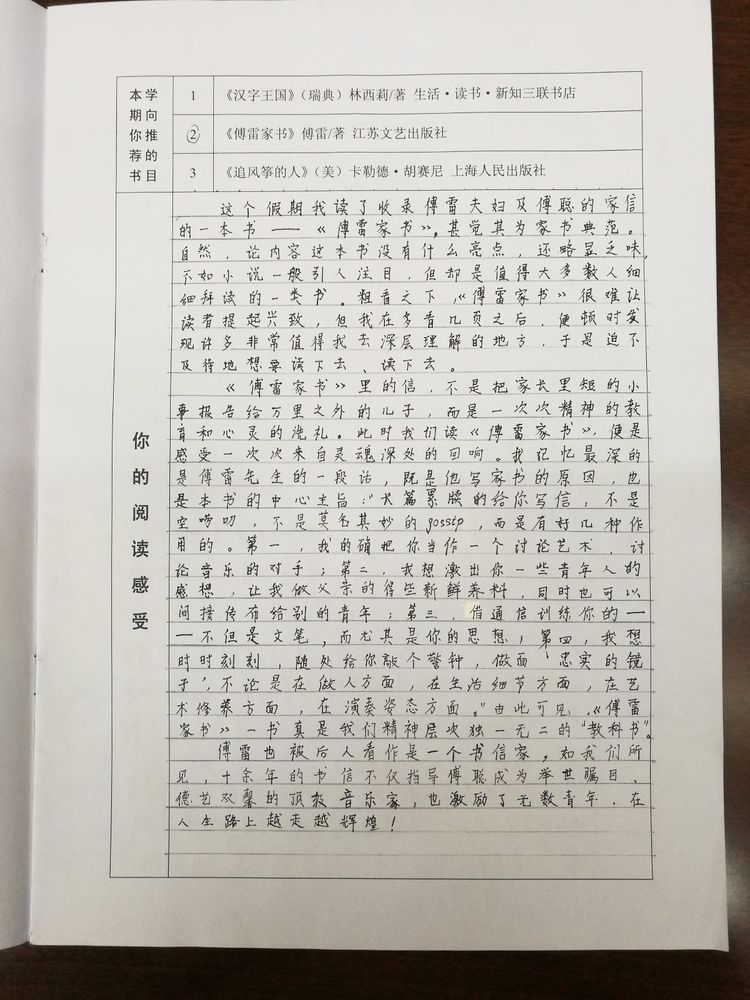 本学期向你推荐的书目
1 《汉字王国》（瑞典）林西莉/著 生活·读书·新知三联书店
② 《傅雷家书》傅雷/著 江苏文艺出版社
3 《追风筝的人》（美）卡勒德·胡赛尼 上海人民出版社
你的阅读感受
这个假期我读了收录傅雷夫妇及傅聪的家信
的一本书——《傅雷家书》。甚觉其为家书典范。
自然，论内容这本书没有什么亮点，还略显乏味，
不如小说一般引人注目，但却是值得大多数人细
细拜读的一类书。粗看之下，《傅雷家书》很难让
读者提起兴致，但我在多看几页之后，便顿时发
现许多非常值得我去深层理解的地方，于是迫不
及待地想要读下去、读下去。
《傅雷家书》里的信，不是把家长里短的小
事报告给万里之外的儿子，而是一次次精神的教
育和心灵的洗礼。此时我们读《傅雷家书》，便是
感受一次次来自灵魂深处的回响。我记忆最深的
是傅雷先生的一段话，既是他写家书的原因，也
是本书的中心主旨：“大篇累牍的给你写信，不是
空唠叨，不是莫名其妙的gossip，而是有好几种作
用的。第一，我的确把你当作一个讨论艺术，讨
论音乐的对手；第二，我想激出你一些青年人的
感想，让我做父亲的得些新鲜养料，同时也可以
间接传布给别的青年；第三，借通信训练你的—
—不但是文笔，而尤其是你的思想；第四，我想
时时刻刻，随处给你敲个警钟，做面‘忠实的镜
子’，不论是在做人方面，在生活细节方面，在艺
术修养方面，在演奏姿态方面。”由此可见，《傅雷
家书》一书真是我们精神层次独一无二的“教科书”。
傅雷也被后人看作是一个书信家，如我们所
见，十余年的书信不仅指导傅聪成为举世瞩目、
德艺双馨的顶级音乐家，也激励了无数青年，在
人生路上越走越辉煌！